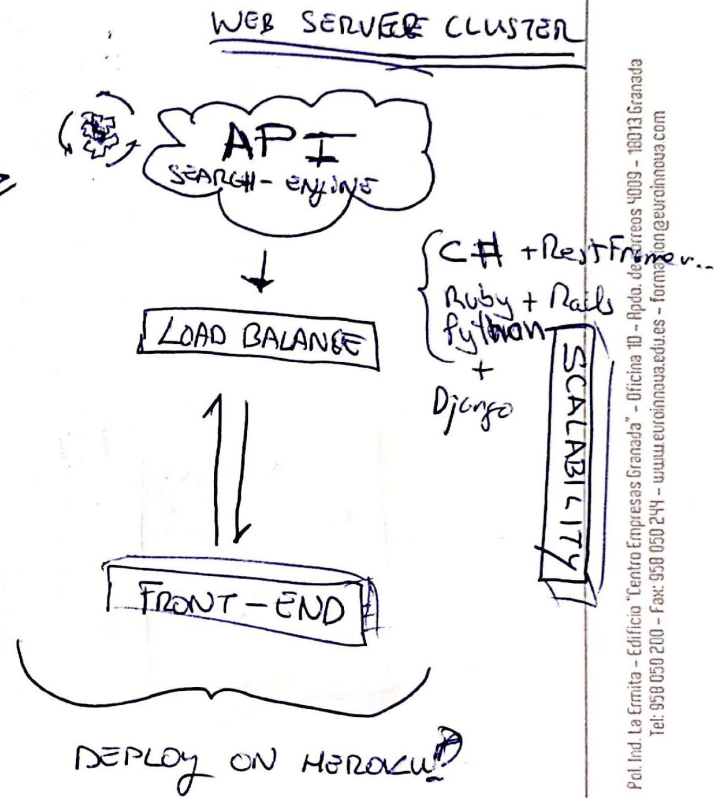 WEB SERVER CLUSTER
API
SEARCH-ENGINE
LOAD BALANCE
C# + RestFramew..
Ruby + Rails
Python
+
Django
SCALABILITY
FRONT-END
DEPLOY ON HEROKU?
Pol. Ind. La Ermita - Edificio "Centro Empresas Granada" - Oficina 1D - Apdo. de correos 4009 - 18013 Granada
Tel: 958 050 200 - Fax: 958 050 244 - www.euroinnova.edu.es - formacion@euroinnova.com